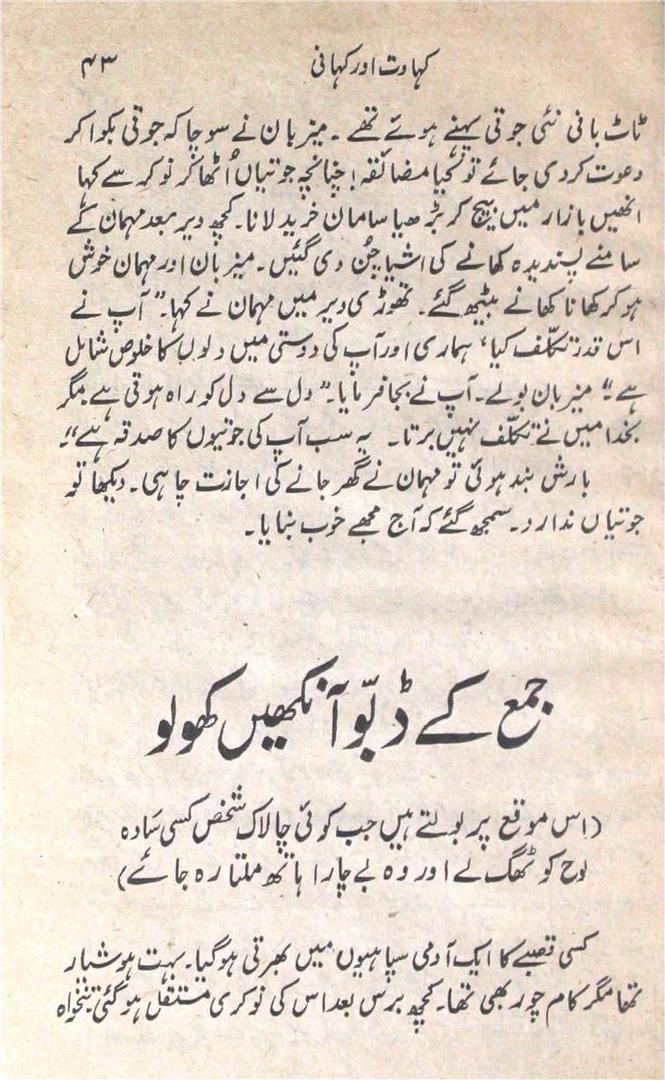 کہاوت اور کہانی ۴۳
ٹاٹ بانی نئی جوتی پہنے ہوئے تھے ۔ میزبان نے سوچا کہ جوتی بکوا کر
دعوت کر دی جائے تو کیا مضائقہ! چنانچہ جوتیاں اُٹھا کر نوکر سے کہا
انھیں بازار میں بیچ کر بڑھیا سامان خرید لانا۔ کچھ دیر بعد مہمان کے
سامنے پسندیدہ کھانے کی اشیا چُن دی گئیں۔ میزبان اور مہمان خوش
ہو کر کھانا کھانے بیٹھ گئے۔ تھوڑی دیر میں مہمان نے کہا۔ ”آپ نے
اس قدر تکلّف کیا، ہماری اور آپ کی دوستی میں دلوں کا خلوص شامل
ہے“ میزبان بولے۔ آپ نے بجا فرمایا۔ ”دل سے دل کو راہ ہوتی ہے مگر
بخدا میں نے تکلّف نہیں برتا۔ یہ سب آپ کی جوتیوں کا صدقہ ہے“۔
بارش بند ہوئی تو مہمان نے گھر جانے کی اجازت چاہی۔ دیکھا تو
جوتیاں ندارد۔ سمجھ گئے کہ آج مجھے خوب بنایا۔
جمع کے ڈبّو آنکھیں کھولو
(اس موقع پر بولتے ہیں جب کوئی چالاک شخص کسی سَادہ
لوح کو ٹھگ لے اور وہ بے چارا ہاتھ ملتا رہ جائے)
کسی قصبے کا ایک آدمی سپاہیوں میں بھرتی ہو گیا۔ بہت ہوشیار
تھا مگر کام چور بھی تھا۔ کچھ برس بعد اس کی نوکری مستقل ہو گئی۔ تنخواہ